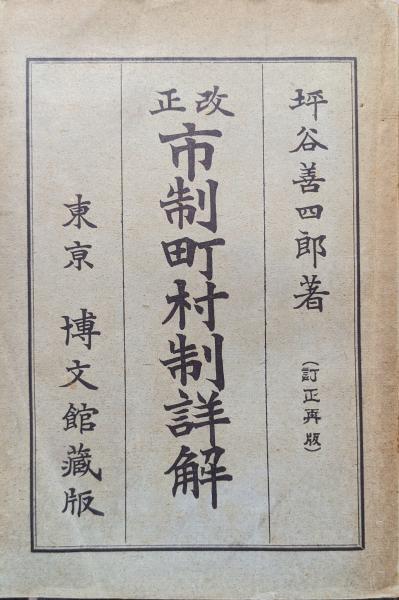 坪谷善四郎著
(訂正再版)
改正
市制町村制詳解
東京 博文館藏版